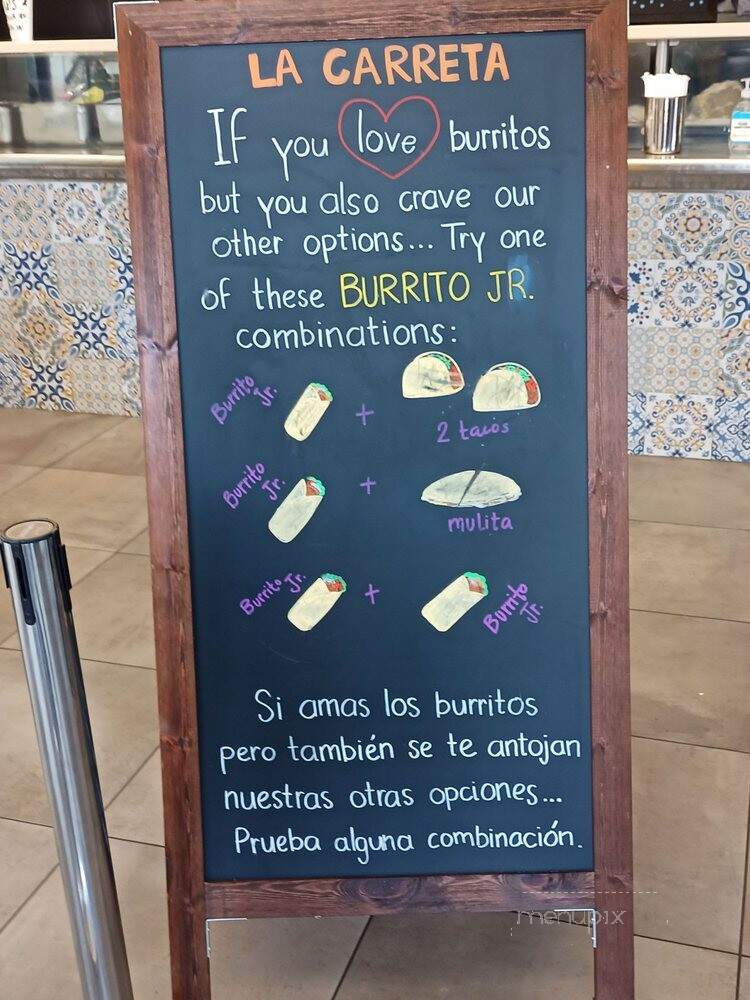 LA CARRETA
If you love burritos
but you also crave our
other options... Try one
of these BURRITO JR.
combinations:
Burrito Jr. + 2 tacos
Burrito Jr. + mulita
Burrito Jr. + Burrito Jr.
Si amas los burritos
pero también se te antojan
nuestras otras opciones...
Prueba alguna combinación.
menupix